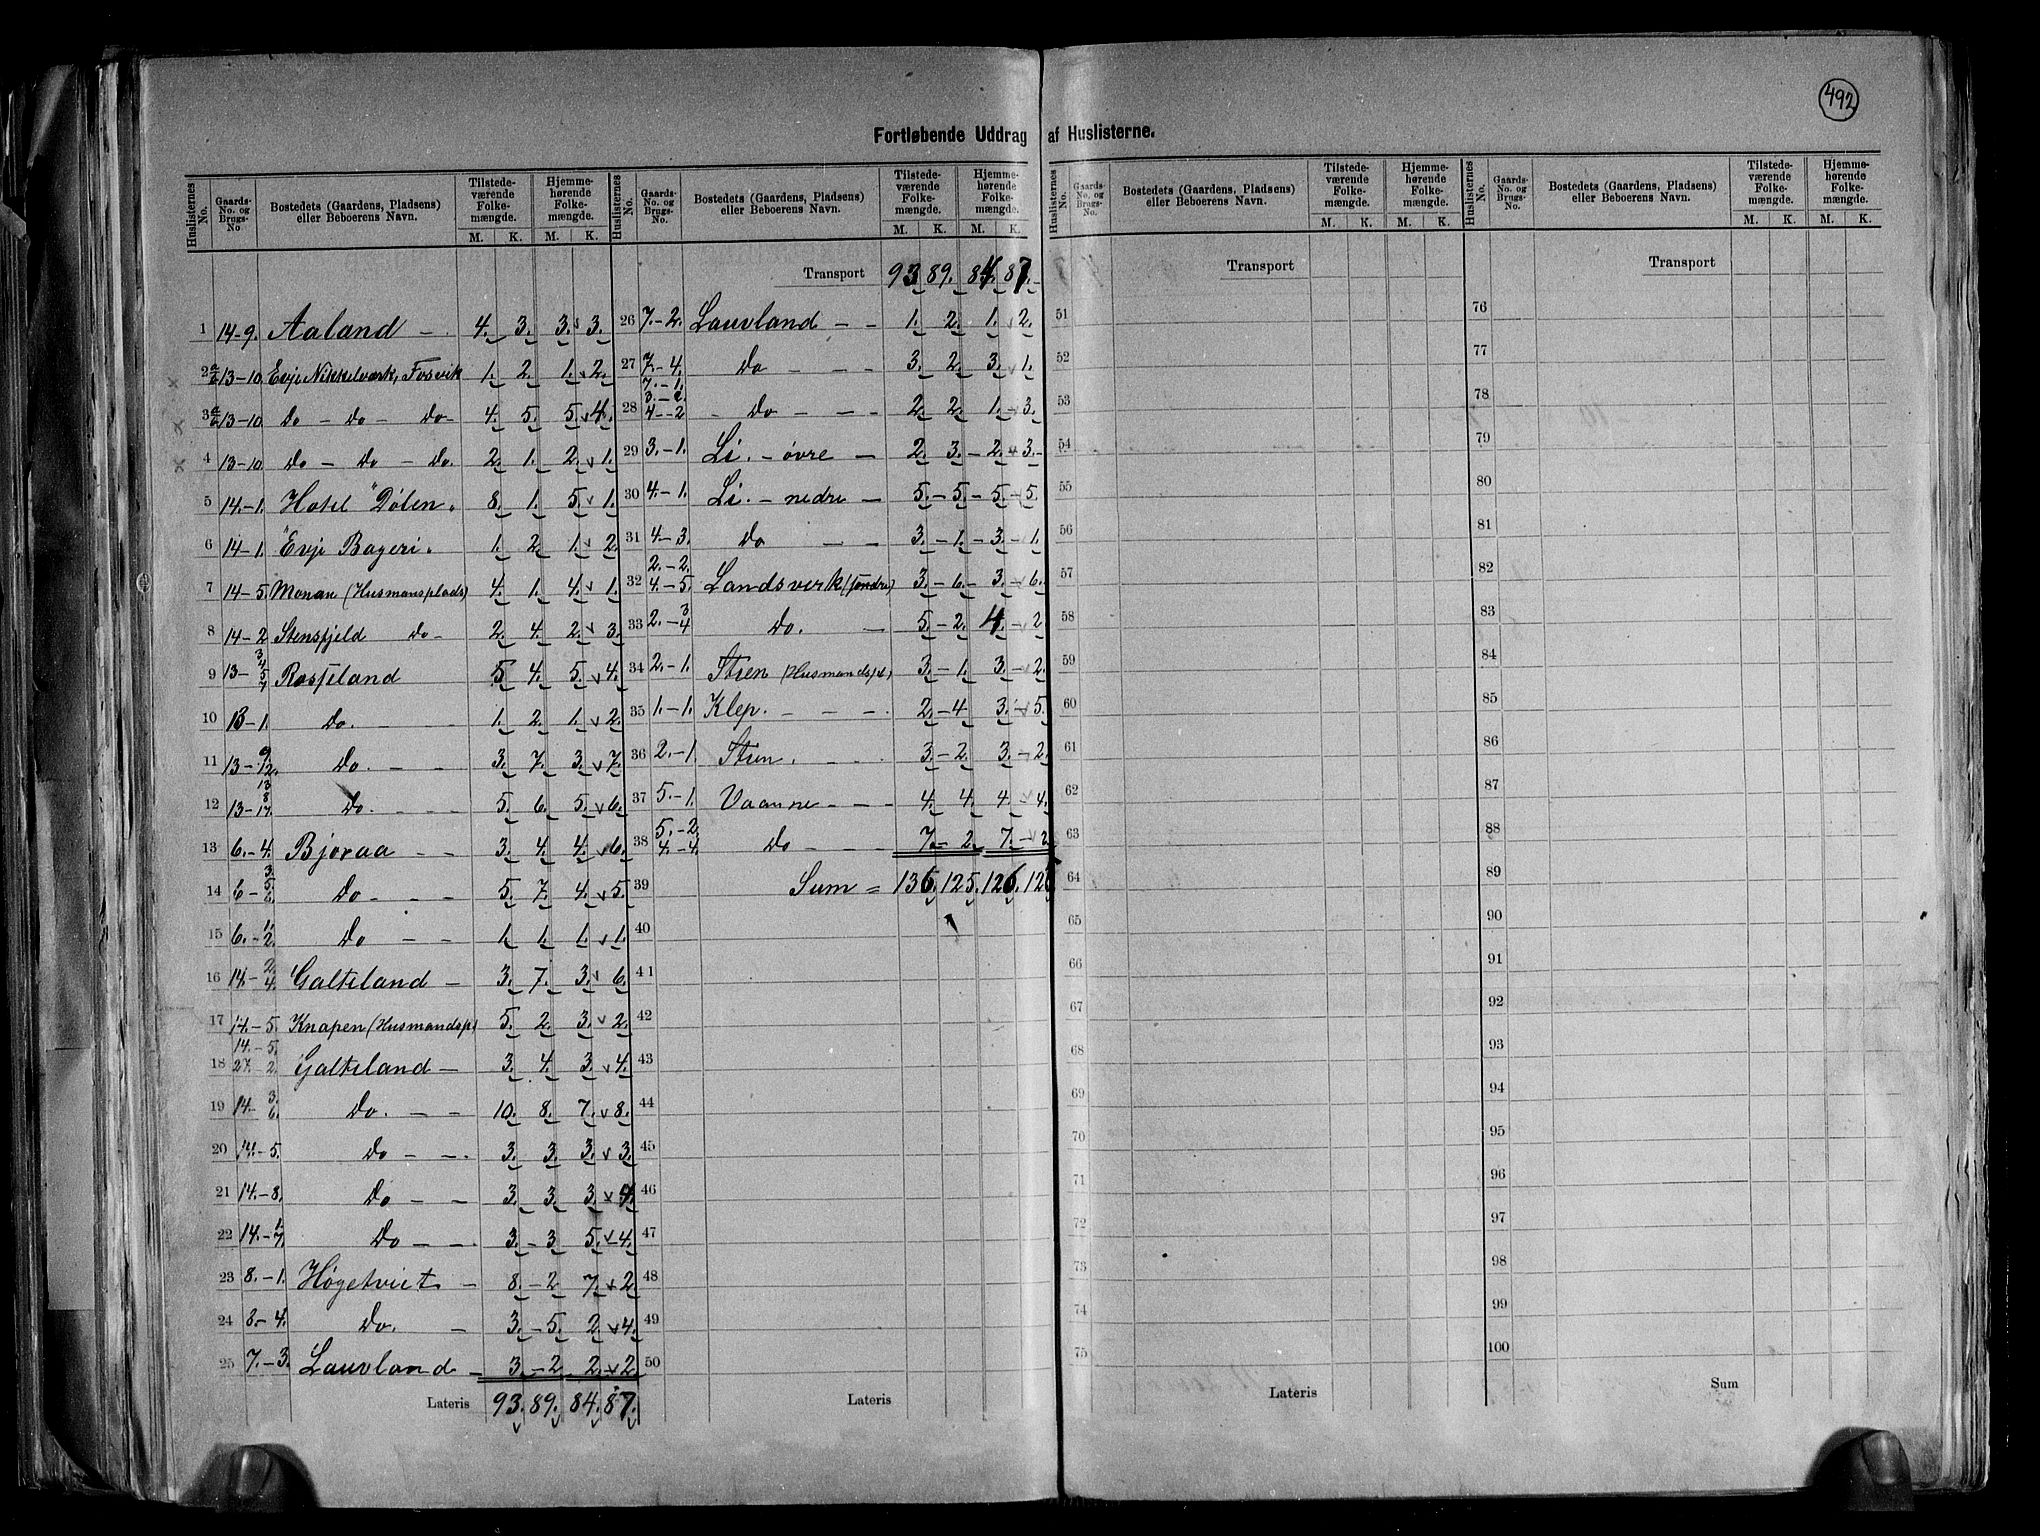 492
Fortløbende Uddrag af Huslisterne.
Huslisternes No. Gaards-No. og Brugs-No Bostedets (Gaardens, Pladsens) eller Beboerens Navn. Tilstedeværende Folkemængde. M. K. Hjemmehørende Folkemængde. M. K.
1 14-9. Aaland 4. 3. 3. 3.
2 a/b 13-10 Evje Nikkelværk, Fosvik 1. 2. 1. 2.
3 a/b 13-10 Do - Do - Do 4. 5. 5. 4.
4 13-10 Do - Do - Do. 2. 1. 2. 1.
5 14-1. Hotel "Dølen" 8. 1. 5. 1.
6 14-1. "Evje Bageri" 1. 2. 1. 2.
7 14-5. Monan (Husmansplads) 4. 1. 4. 1.
8 14-2 Stensfjeld Do 2. 4. 2. 3.
9 13-3/4/5/7 Rosseland 5. 4. 5. 4.
10 13-1. Do. 1. 2. 1. 2.
11 13-9./12. Do. 3. 7. 3. 7.
12 13- Do. 5. 6. 5. 6.
13 6.-4. Bjoraa 3. 4. 4. 6.
14 6-3./5./6. Do 5. 7. 4. 5.
15 6.-1./2. Do 1. 1. 1. 1.
16 14.-2./4. Galteland 3. 7. 3. 6.
17 14.-5. Knapen (Husmandspl) 5. 2. 3. 2.
18 14.-5. 27.-2. Galteland 3. 4. 3. 4.
19 14-3./6. Do. 10. 8. 7. 8.
20 14.-5. Do 3. 3. 3. 3.
21 14.-8. Do 3. 3. 3. 4.
22 14.-1/7. Do 3. 3 5. 4.
23 8.-1. Høgetviet 8. 2 7. 2.
24 8.-4. Do. 3. 5. 2. 4.
25 7.-3. Lauvland 3. 2 2. 2.
Lateris 93. 89. 84. 87.
Huslisternes No. Gaards-No. og Brugs-No. Bostedets (Gaardens, Pladsens) eller Beboerens Navn. Tilstedeværende Folkemængde. M. K. Hjemmehørende Folkemængde. M. K.
Transport 93 89. 84. 87.
26 7.-2. Lauvland 1. 2. 1. 2.
27 7.-4. Do 3. 2. 3. 1.
28 7.-1. 3.-2. 4.-2 Do 2. 2. 1. 3.
29 3.-1. Li. - øvre 2. 3. 2. 3.
30 4.-1. Li. - nedre 5. 5. 5. 5.
31 4-3. Do 3. 1. 3. 1.
32 2.-2. 4.-5. Landsverk (søndre) 3. 6. 3. 6.
33 2.-3/4 Do. 5. 2. 4. 2
34 2.-1. Stien (Husmandspl) 3. 1. 3. 2.
35 1.-1. Klep. 2. 4 3. 5.
36 2.-1. Stien. 3 2. 3. 2.
37 5.-1. Vaanne 4. 4. 4. 4.
38 5.-2. 4.-4. Do 7. 2. 7. 2.
39 Sum = 136. 125. 126. 126
40
41
42
43
44
45
46
47
48
49
50
Lateris
Huslisternes No. Gaards-No. og Brugs-No. Bostedets (Gaardens, Pladsens) eller Beboerens Navn. Tilstedeværende Folkemængde. M. K. Hjemmehørende Folkemængde. M. K.
Transport
51
52
53
54
55
56
57
58
59
60
61
62
63
64
65
66
67
68
69
70
71
72
73
74
75
Lateris
Huslisternes No. Gaards-No. og Brugs-No. Bostedets (Gaardens, Pladsens) eller Beboerens Navn. Tilstedeværende Folkemængde. M. K. Hjemmehørende Folkemængde. M. K.
Transport
76
77
78
79
80
81
82
83
84
85
86
87
88
89
90
91
92
93
94
95
96
97
98
99
100
Sum